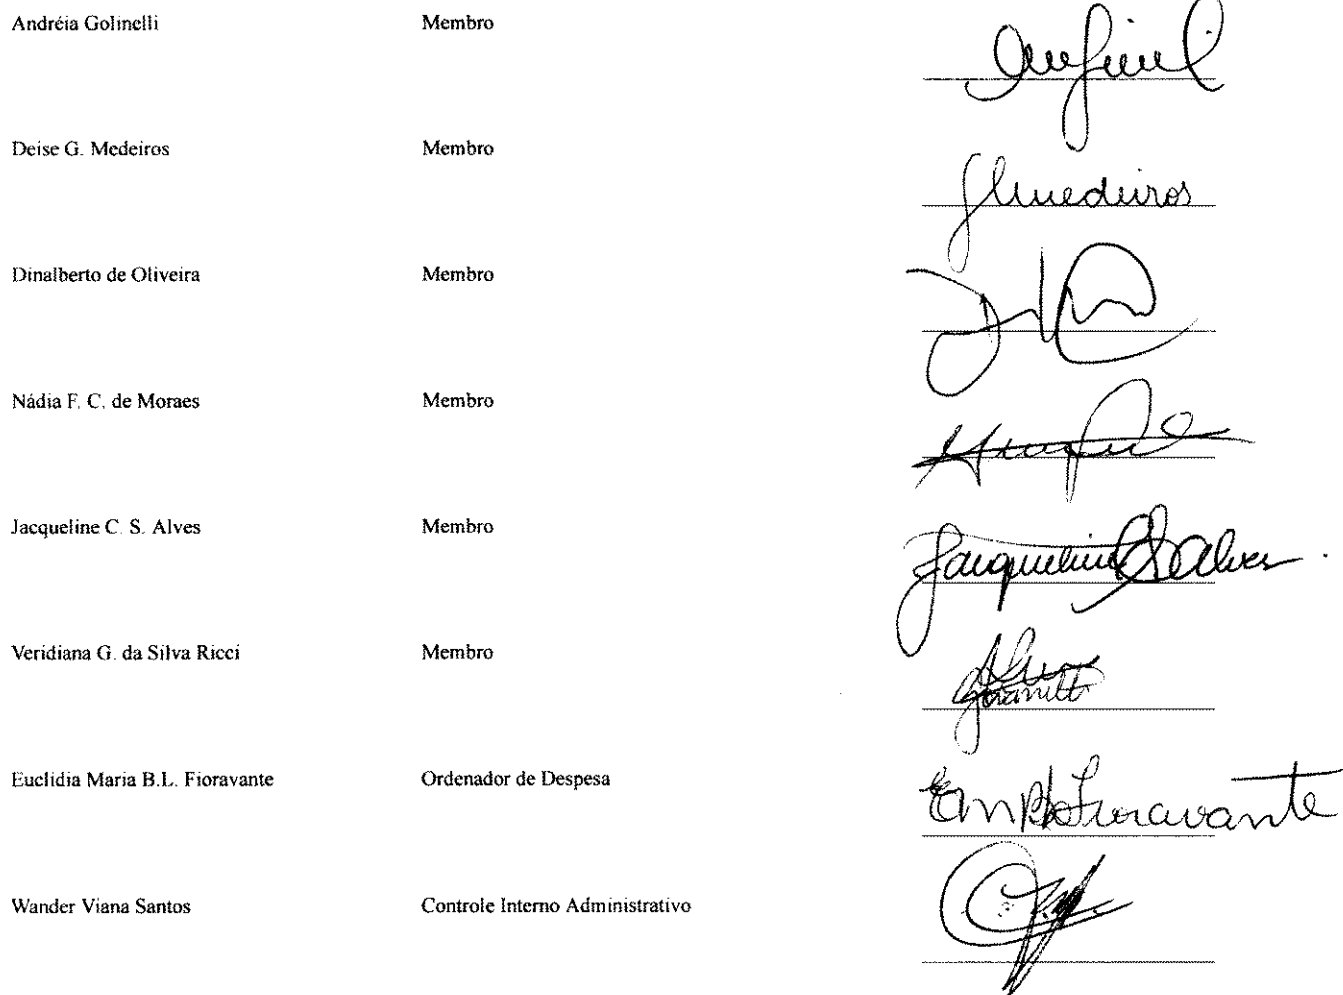 Andréia Golinelli Membro
Deise G. Medeiros Membro
Gmedeiros
Dinalberto de Oliveira Membro
Nádia F. C. de Moraes Membro
Jacqueline C. S. Alves Membro
Jacqueline CSAlves
Veridiana G. da Silva Ricci Membro
Euclidia Maria B.L. Fioravante Ordenador de Despesa
EmBLFioravante
Wander Viana Santos Controle Interno Administrativo